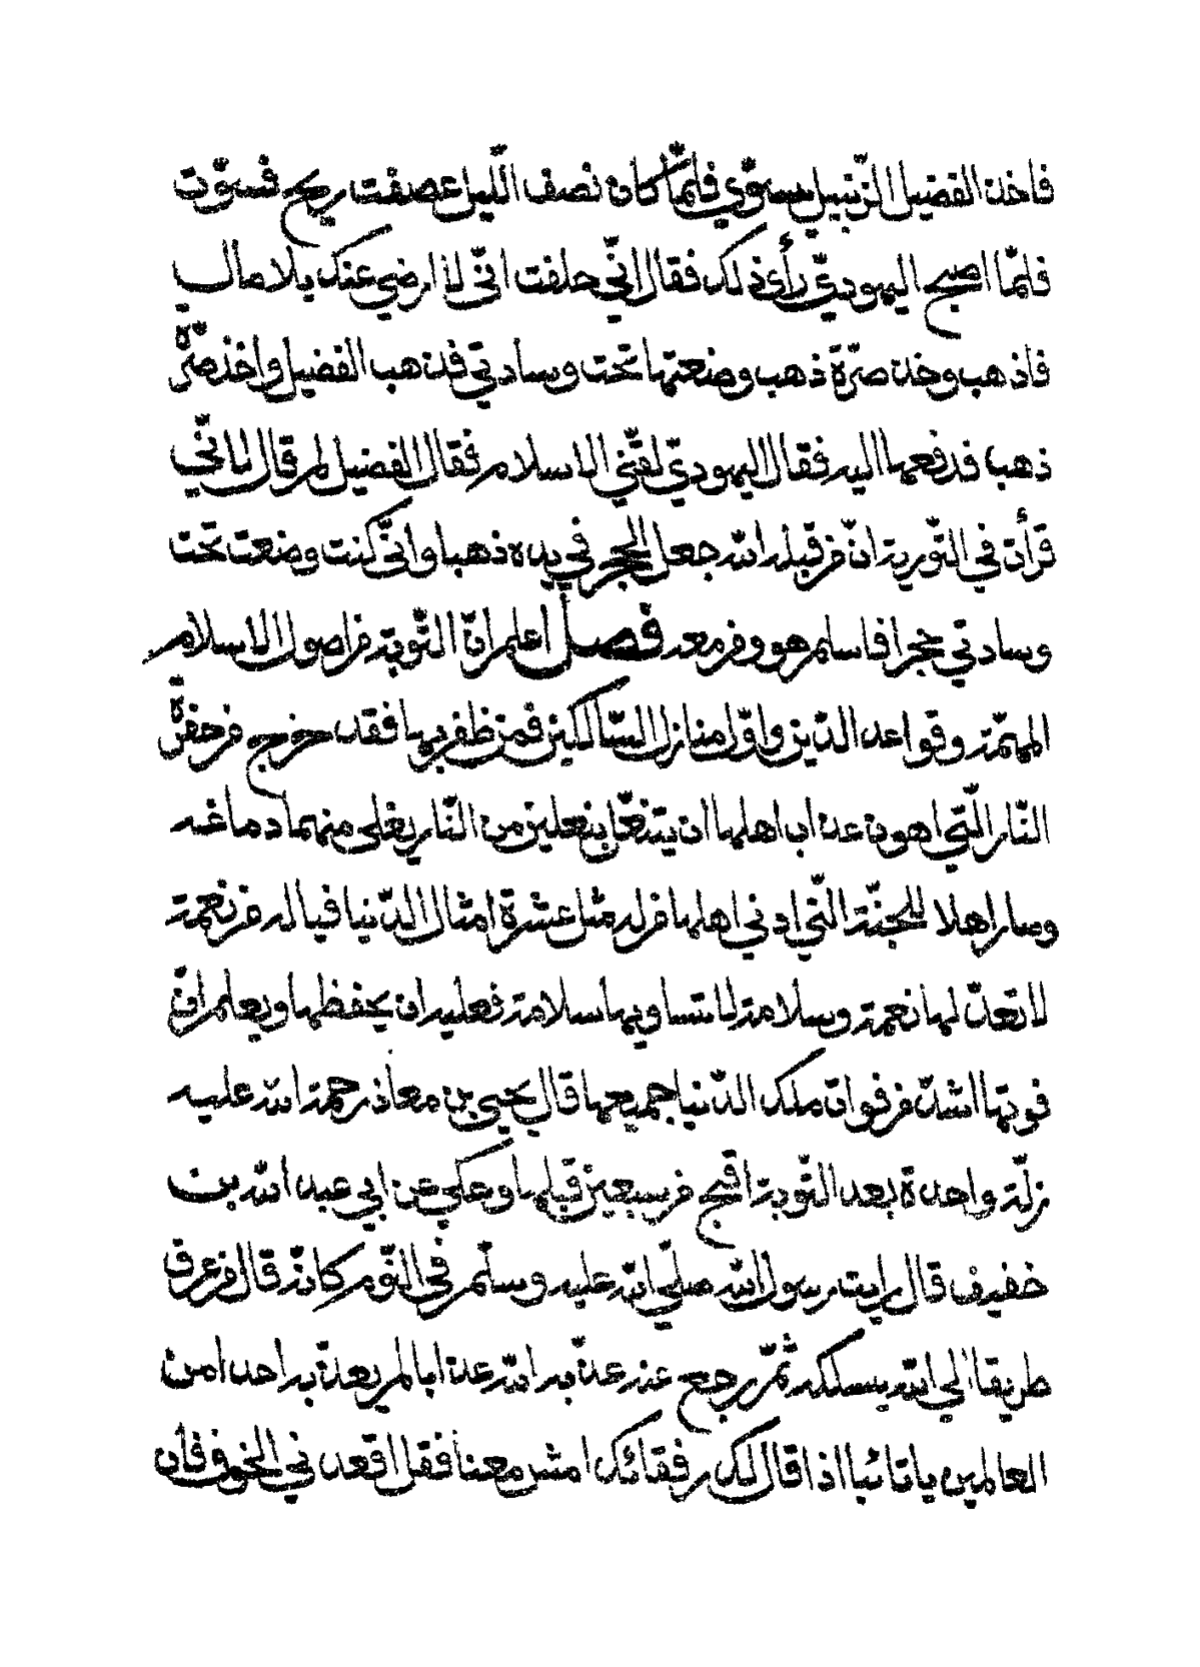 فاخذ الفضيل الزنبيل يسوّي فلمّا كان نصف اللّيل عصفت ريح فسوّت
فلمّا اصبح اليهوديّ رأى ذلك فقال انّي حلفت انّي لا ارضي عنك بلا مال
فاذهب وخذ صرّة ذهب وضعتها تحت وسادتي فذهب الفضيل واخذ صرّة
ذهبا فدفعها اليه فقال اليهوديّ لقّني الاسلام فقال الفضيل لم قال لانّي
قرأت في التّورية انّ من قبله الله جعل الحجر في يده ذهبا وانّي كنت وضعت تحت
وسادتي حجرا فاسلم هو ومن معه فصل اعلم انّ التّوبة من اصول الاسلام
المهمّة وقواعد الدّين واوّل منازل السّالكين فمن ظفر بها فقد خرج من حفرة
النّار الّتي اهون عذاب اهلها ان يتنعّل بنعلين من النّار يغلي منهما دماغه
وصار اهلا للجنّة الّتي ادني اهلها من له مثل عشرة امثال الدّنيا فيا له من نعمة
لا تعدّ لها نعمة وسلامة لا تساويها سلامة فعليه ان يحفظها ويعلم انّ
فوتها اشدّ من فوات ملك الدّنيا جميعها قال يحيي بن معاذ رحمة الله عليه
زلّة واحدة بعد التّوبة اقبح من سبعين قبلها وحكي عن ابي عبد الله بن
خفيف قال رايت رسول الله صلّي الله عليه وسلّم في النّوم كانّه قال من عرف
طريقا الي الله يسلكه ثمّ رجع عنه عذّبه الله عذابا لم يعذّب به احدا من
العالمين يا تائبا اذا قال لك رفقائك امش معنا فقل اقعدني الخوف فان